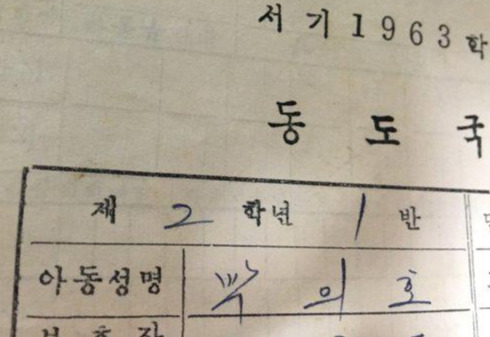 서기 1963 학
동 도 국
제 2 학년 1 반
아동성명 박 의 호